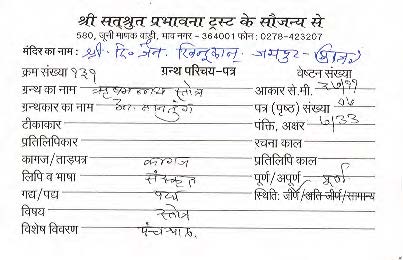 श्री सत्श्रुत प्रभावना ट्रस्ट के सौजन्य से
580, जूनी माणक वाड़ी, भाव नगर - 364001 फोन : 0278-423207
मंदिर का नाम : श्री दि. जैन
क्रम संख्या १३१ ग्रन्थ परिचय-पत्र वेष्टन संख्या
ग्रन्थ का नाम स्तोत्र आकार से.मी.
ग्रन्थकार का नाम पत्र (पृष्ठ) संख्या
टीकाकार पंक्ति, अक्षर ७/३३
प्रतिलिपिकार रचना काल
कागज/ताड़पत्र कागज प्रतिलिपि काल
लिपि व भाषा संस्कृत पूर्ण/अपूर्ण पूर्ण
गद्य/पद्य पद्य स्थिति: जीर्ण/अति जीर्ण/सामान्य
विषय स्तोत्र
विशेष विवरण